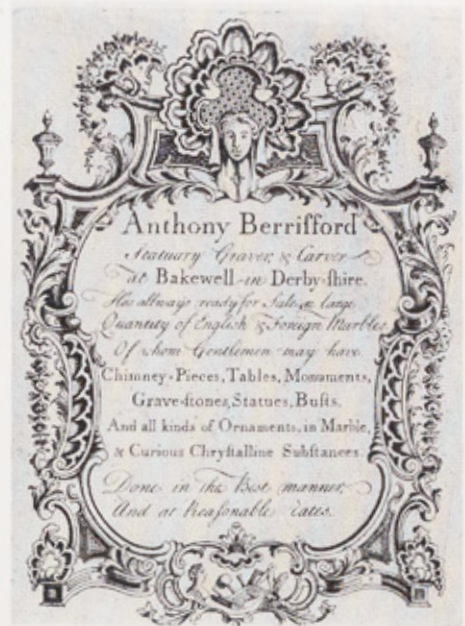 Anthony Berrifford
Statuary Graver, & Carver
at Bakewell in Derby-ſhire.
Has allways ready for Sale a large
Quantity of English & Foreign Marbles
Of whom Gentlemen may have
Chimney-Pieces, Tables, Monuments,
Grave-ſtones, Statues, Buſts.
And all kinds of Ornaments, in Marble,
& Curious Chryſtalline Subſtances.
Done in the Best manner,
And at Reasonable rates.